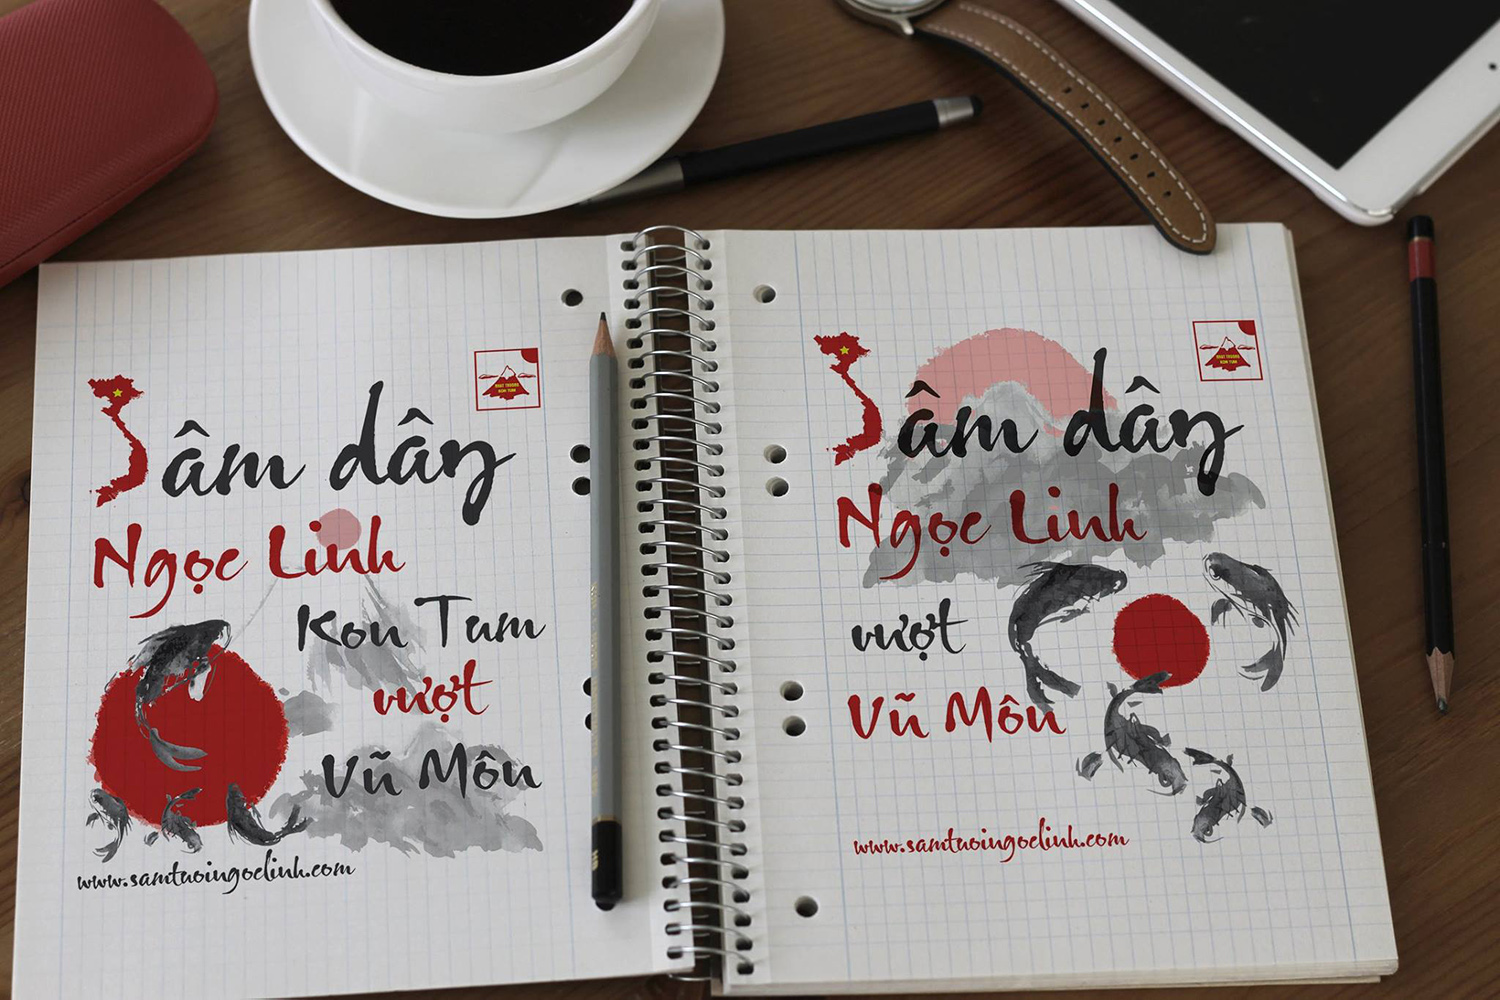 Sâm dây
Ngọc Linh
Kon Tum
vượt
Vũ Môn
www.samtuoingoclinh.com
Sâm dây
Ngọc Linh
vượt
Vũ Môn
www.samtuoingoclinh.com